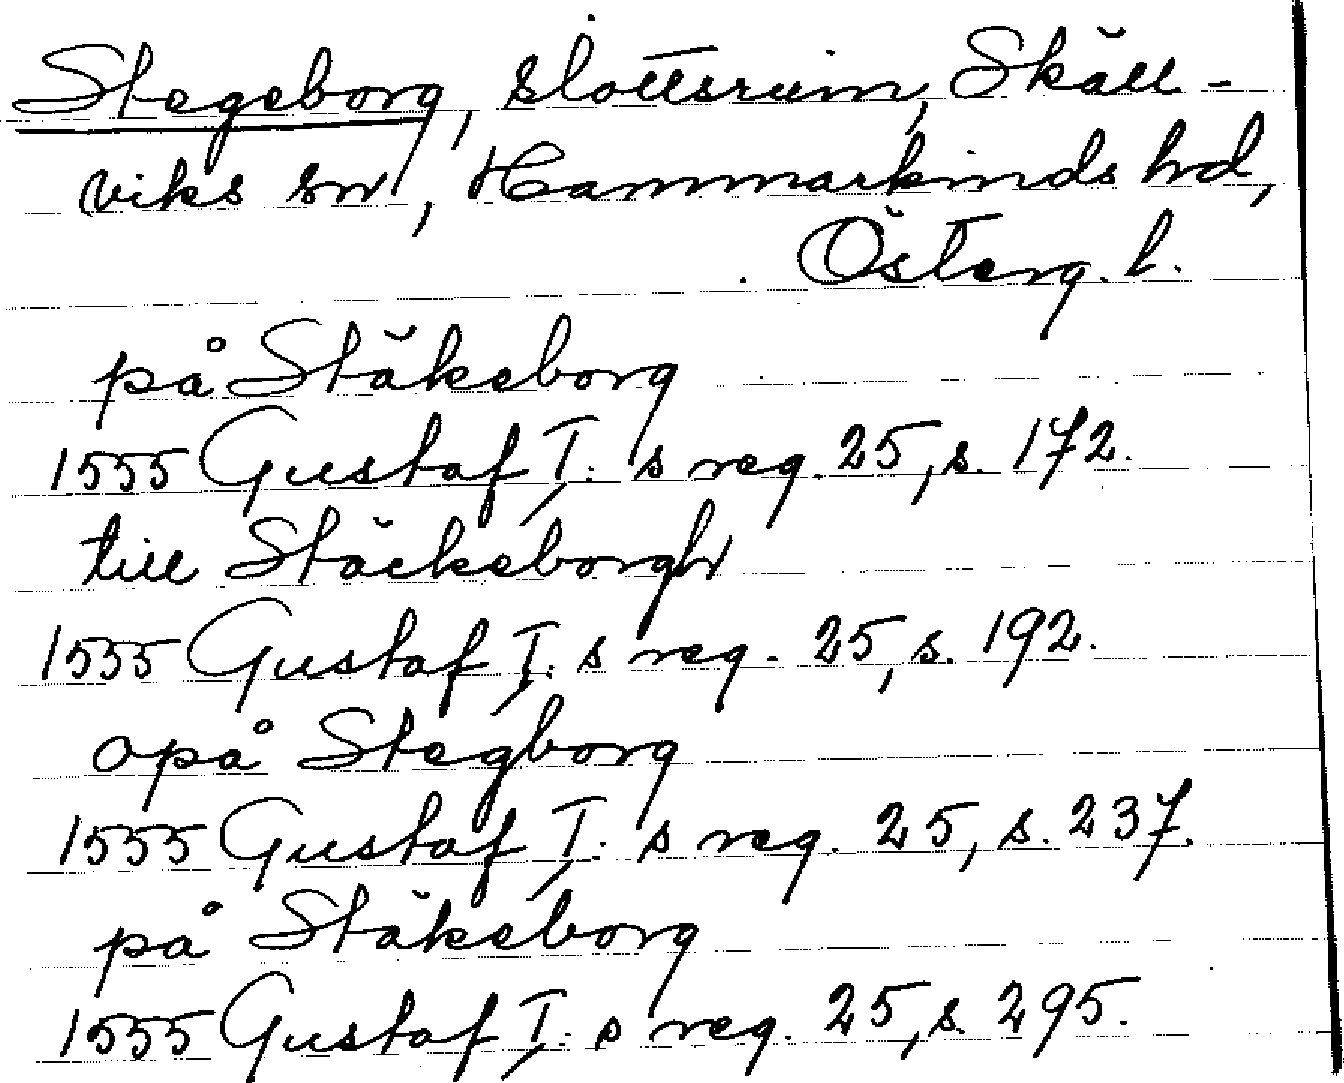 Stegeborg, slottsruin, Skäll-
viks sn, Hammarkinds hd,
Österg. l.
på Stäkeborg
1555 Gustaf I: s reg. 25, s. 172.
till Stäckeborgh
1555 Gustaf I: s reg. 25, s. 192.
opå Stegborg
1555 Gustaf I: s reg. 25, s. 237.
på Stäkeborg
1555 Gustaf I: s reg. 25, s. 295.